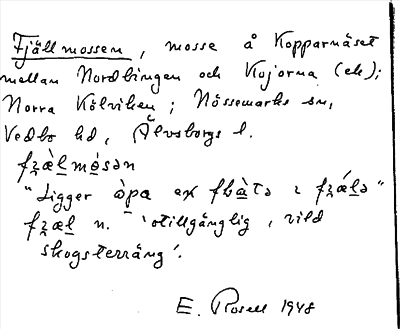 Fjällmossen, mosse å Kopparnäset
mellan Nordbingen och Kojorna (ek);
Norra Kölviken; Nössemarks sn,
Vedbo hd, Älvsborgs l.
fʒæ̀l̲mó̲sən
"Ligger òpa ex fbà̲tə ɩ fʒǽl̲ə"
fʒæl̲ n. 'otillgänglig, vild
skogsterräng'.
E. Rosell 1948